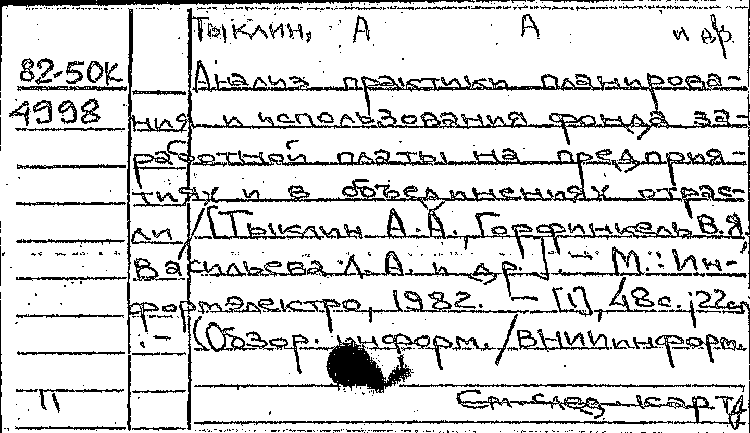 Тыклин, А А и др.
82-50К Анализ практики планирова-
4998 ния и использования фонда за-
работной платы на предприя-
тиях и в объединениях отрас-
ли / [Тыклин А. А., Горфинкель В.Я.,
Васильева Л. А. и др.]. — М.: Ин-
формэлектро, 1982. — [1], 48 с.; 22 см
. — (Обзор. информ. / ВНИИинформ.
См след карт